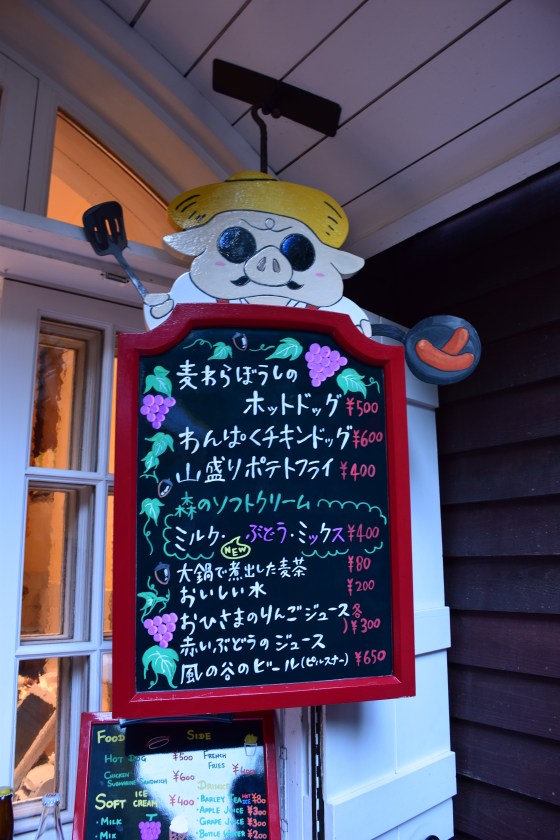 麦わらぼうしの
ホットドッグ ¥500
わんぱくチキンドッグ ¥600
山盛りポテトフライ ¥400
森のソフトクリーム
ミルク・ぶどう・ミックス ¥400
NEW
大鍋で煮出した麦茶 ¥80
おいしい水 ¥200
おひさまのりんごジュース 各
赤いぶどうのジュース ) ¥300
風の谷のビール(ピルスナー) ¥650
FOOD
HOT DOG ¥500
CHICKEN SUBMARINE SANDWICH ¥600
SOFT ICE CREAM ¥400
・MILK
・MIX
SIDE
FRENCH FRIES
DRINKS
・BARLEY TEA
・APPLE JUICE
・GRAPE JUICE
・BOTTLE WATER